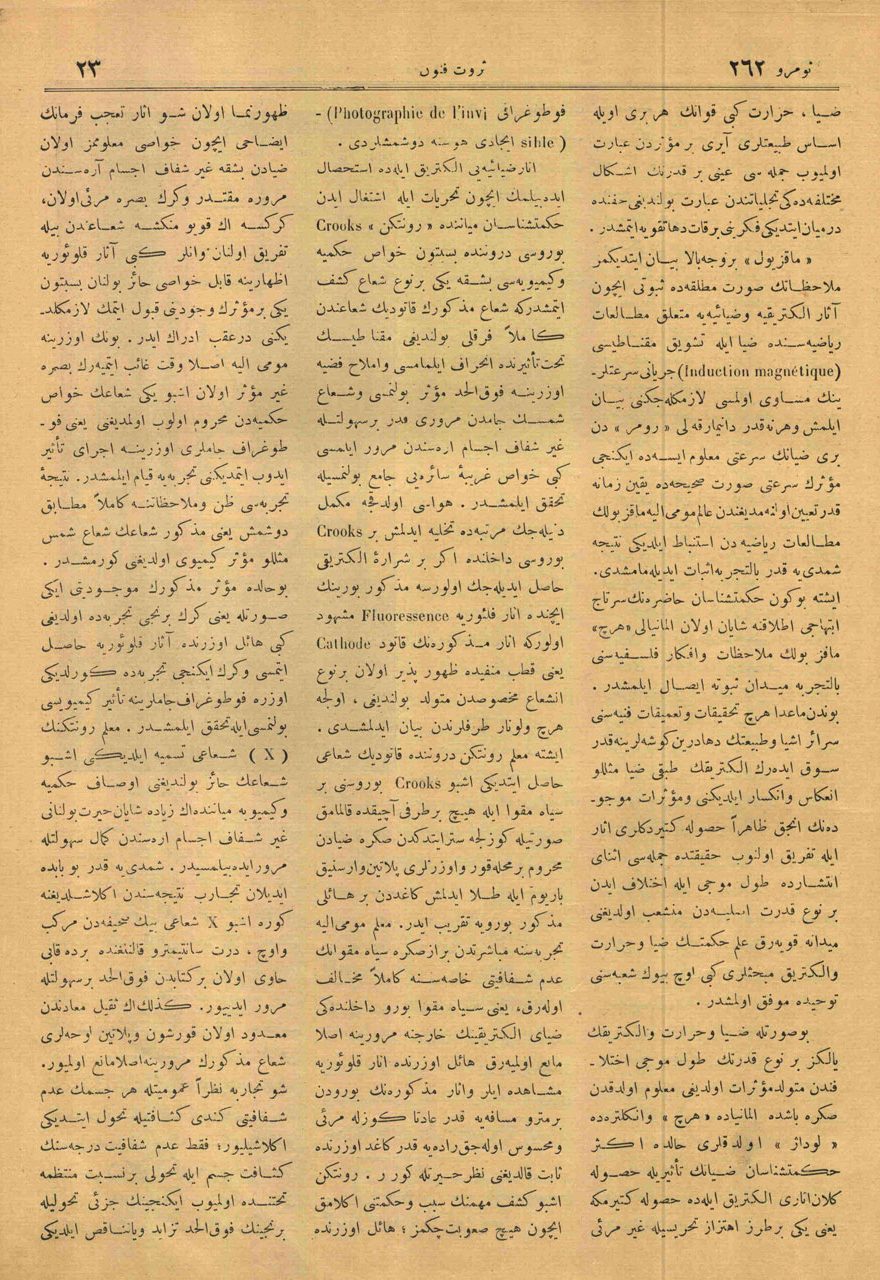 نومرو ٢٦٢
ثروت فنون
٢٣
ضيا ، حزارت كبى قوانك هر برى اويله
اساس طبيعتلرى آيرى بر مؤثردن عبارت
اولميوب جمله سى عينى بر قدرتك اشكال
مختلفه ده كى تجلياتندن عبارت بولنديغى حقنده
درميان ايتديكى فكرنى برقات دها تقويه ايتمشدر .
« ماقزيول » بروجه بالا بيان ايتديكمز
ملاحظاتك صورت مطلقه ده ثبوتى ايچون
آثار الكتريقيه وضيائيه يه متعلق مطالعات
رياضيه سنده ضيا ايله تشويق مقناطيسى
(Induction magnétique) جريانى سرعتلر-
ينك مساوى اولمسى لازمكله جكنى بيان
ايلمش وهرنه قدر دانيمارقه لى « رومر » دن
برى ضيانك سرعتى معلوم ايسه ده ايكنجى
مؤثرك سرعتى صورت صحيحه ده يقين زمانه
قدر تعيين اولنه مديغندن عالم مومى اليه ماقزبولك
مطالعات رياضيه دن استنباط ايلديكى نتيجه
شمدى يه قدر بالتجربه اثبات ايديله مامشدى.
ايشته بوكون حكمتشناسان حاضره نك سرتاج
ابتهاجى اطلاقنه شايان اولان المانيالى «هرچ»
ماقز بولك ملاحظات وافكار فلسفيه سنى
بالتجربه ميدان ثبوته ايصال ايلمشدر .
بوندن ماعدا هرچ تحقيقات وتعميقات فنيه سنى
سرائر اشيا وطبيعتك دها درين كوشه لرينه قدر
سوق ايده رك الكتريقك طبقى ضيا مثللو
انعكاس وانكسار ايلديكنى ومؤثرات موجو-
ده نك انجق ظاهراً حصوله كتيردكلرى اثار
ايله تفريق اولنوب حقيقتده جمله سى اثناى
انتشارده طول موجى ايله اختلاف ايدن
بر نوع قدرت اصليه دن منشعب اولديغنى
ميدانه قويه رق علم حكمتك ضيا وحرارت
والكتريق مبحثلرى كبى اوچ بيوك شعبه سنى
توحيده موفق اولمشدر .
بوصورتله ضيا وحرارت والكتريقك
يالكز بر نوع قدرتك طول موجى اختلا-
فندن متولد مؤثرات اولديغى معلوم اولدقدن
صكره باشده المانياده « هرچ » وانكلتره ده
« لوداژ » اولدقلرى حالده اكثر
حكمتشناسان ضيانك تأثيريله حصوله
كلان اثارى الكتريق ايله ده حصوله كتيرمكه
يعنى يكى برطرز اهتزاز تحريسيله غير مرئى
فوطوغرافى (Photographie de l'invi -
sible ) ايجادى هوسنه دوشمشلردى .
اثار ضيائيه يى الكتريق ايله ده استحصال
ايده بيلمك ايچون تحريات ايله اشتغال ايدن
حكمتشناسان مياننده « رونتكن » Crooks
بوروسى دروننده بستون خواص حكميه
وكيميويه سى بشقه يكى برنوع شعاع كشف
ايتمشدركه شعاع مذكورك قاتوديك شعاعندن
كاملاً فرقلى بولنديغى مقناطيسك
تحت تأثيرنده انحراف ايلمامسى واملاح فضيه
اوزرينه فوق الحد مؤثر بولنمسى وشعاع
شمسك جامدن مرورى قدر برسهولتله
غير شفاف اجسام اره سندن مرور ايلمسى
كبى خواص غريبۀ سائره يى جامع بولنمسيله
تحقق ايلمشدر . هواسى اولدقجه مكمل
دنيله جك مرتبه ده تخليه ايدلمش بر Crooks
بوروسى داخلنده اكر بر شرارۀ الكتريقى
حاصل ايديله جك اولورسه مذكور بورينك
ايچنده اثار فلئوريه Fluoressence مشهود
اولوركه اثار مذكوره نك قاتود Cathode
يعنى قطب منفيده ظهور پذير اولان برنوع
انشعاع مخصوصدن متولد بولنديغى ، اولجه
هرچ ولونار طرفلرندن بيان ايدلمشدى .
ايشته معلم رونتكن دروننده قاتوديك شعاعى
حاصل ايتديكى اشبو Crooks بوروسنى بر
سياه مقوا ايله هيچ برطرفى آچيقده قالمامق
صورتيله كوزلجه ستر ايتدكدن صكره ضيادن
محروم برمحله قور واوزرلرى پلاتين وارسليق
باريوم ايله طلا ايدلمش كاغددن بر هائلى
مذكور بورويه تقريب ايدر. معلم مومى اليه
تجربه سنه مباشرتندن براز صكره سياه مقوانك
عدم شفافيتى خاصه سنه كاملاً مخالف
اوله رق، يعنى سياه مقوا بورو داخلنده كى
ضياى الكتريقينك خارجنه مرورينه اصلا
مانع اولميه رق هائل اوزرنده اثار فلئوريه
مشاهده ايلر واثار مذكوره نك بورودن
برمترو مسافه يه قدر عادتا كوزله مرئى
ومحسوس اوله جق راده يه قدر كاغد اوزرنده
ثابت قالديغنى نظر حيرتله كورر . رونتكن
اشبو كشف مهمنك سبب وحكمتنى اكلامق
ايچون هيچ صعوبت چكمز ؛ هائل اوزرنده
ظهورنما اولان شو اثار تعجب فرمانك
ايضاحى ايچون خواصى معلومز اولان
ضيادن بشقه غير شفاف اجسام آره سندن
مروره مقتدر وكرك بصره مرئى اولان،
كركسه اك قويو منكشه شعاعندن بيله
تفريق اولنان وانلر كبى آثار فلوئوريه
اظهارينه قابل خواصى حائز بولنان بستون
يكى برمؤثرك وجودينى قبول ايتمك لازمكلد-
يكنى درعقب ادراك ايدر . بونك اوزرينه
مومى اليه اصلا وقت غائب ايتميه رك بصره
غير مؤثر اولان اشبو يكى شعاعك خواص
حكميه دن محروم اولوب اولمديغنى يعنى فو-
طوغراف جاملرى اوزرينه اجراى تأثير
ايدوب ايتمديكنى تجربه يه قيام ايلمشدر. نتيجۀ
تجربه سى ظن وملاحظاتنه كاملاً مطابق
دوشمش يعنى مذكور شعاعك شعاع شمس
مثللو مؤثر كيميوى اولديغنى كورمشدر .
بوحالده مؤثر مذكورك موجوديتى ايكى
صورتله يعنى كرك برنجى تجربه ده اولديغى
كبى هائل اوزرنده آثار فلوئوريه حاصل
ايتمسى وكرك ايكنجى تجربه ده كورلديكى
اوزره فوطوغراف جاملرينه تأثير كيميويسى
بولنمسى ايله تحقق ايلمشدر . معلم رونتكنك
( X ) شعاعى تسميه ايلديكى اشبو
شعاعك حائز بولنديغى اوصاف حكميه
وكيميويه مياننده اك زياده شايان حيرت بولنانى
غير شفاف اجسام اره سندن كمال سهولتله
مرور ايده بيلمسيدر. شمدى يه قدر بو بابده
ايديلان تجارب نتيجه سندن اكلاشلديغنه
كوره اشبو X شعاعى بيك صحيفه دن مركب
واوچ ، درت سانتيمترو قالنلغنده برده قابى
حاوى اولان بر كتابدن فوق الحد برسهولتله
مرور ايدييور. كذلك اك ثقيل معادندن
معدود اولان قورشون وپلاتين لوحه لرى
شعاع مذكورك مرورينه اصلا مانع اولميور.
شو تجاربه نظراً عموميتله هر جسمك عدم
شفافيتى كندى كثافتيله تحول ايتديكى
اكلاشيليور؛ فقط عدم شفافيت درجه سنك
كثافت جسم ايله تحولى برنسبت منتظمه
تحتنده اولميوب ايكنجينك جزئى تحوليله
برنجينك فوق الحد تزايد وياتناقص ايلديكى